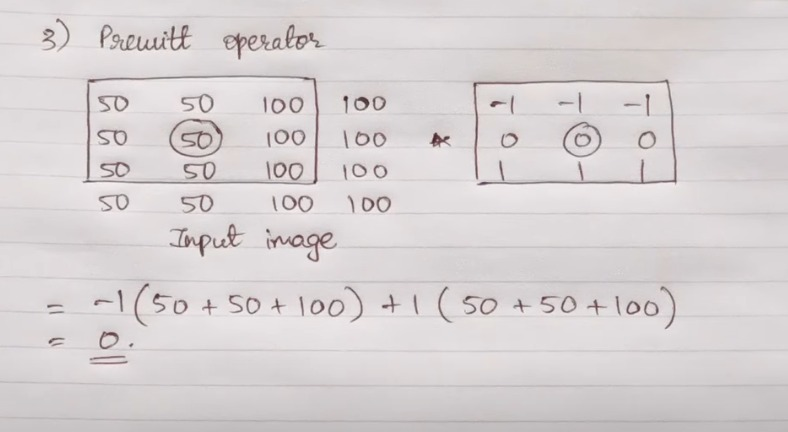 3) Prewitt operator
50 50 100 100 -1 -1 -1
50 50 100 100 * 0 0 0
50 50 100 100 1 1 1
50 50 100 100
Input image
= -1(50 + 50 + 100) + 1 (50 + 50 + 100)
= 0.